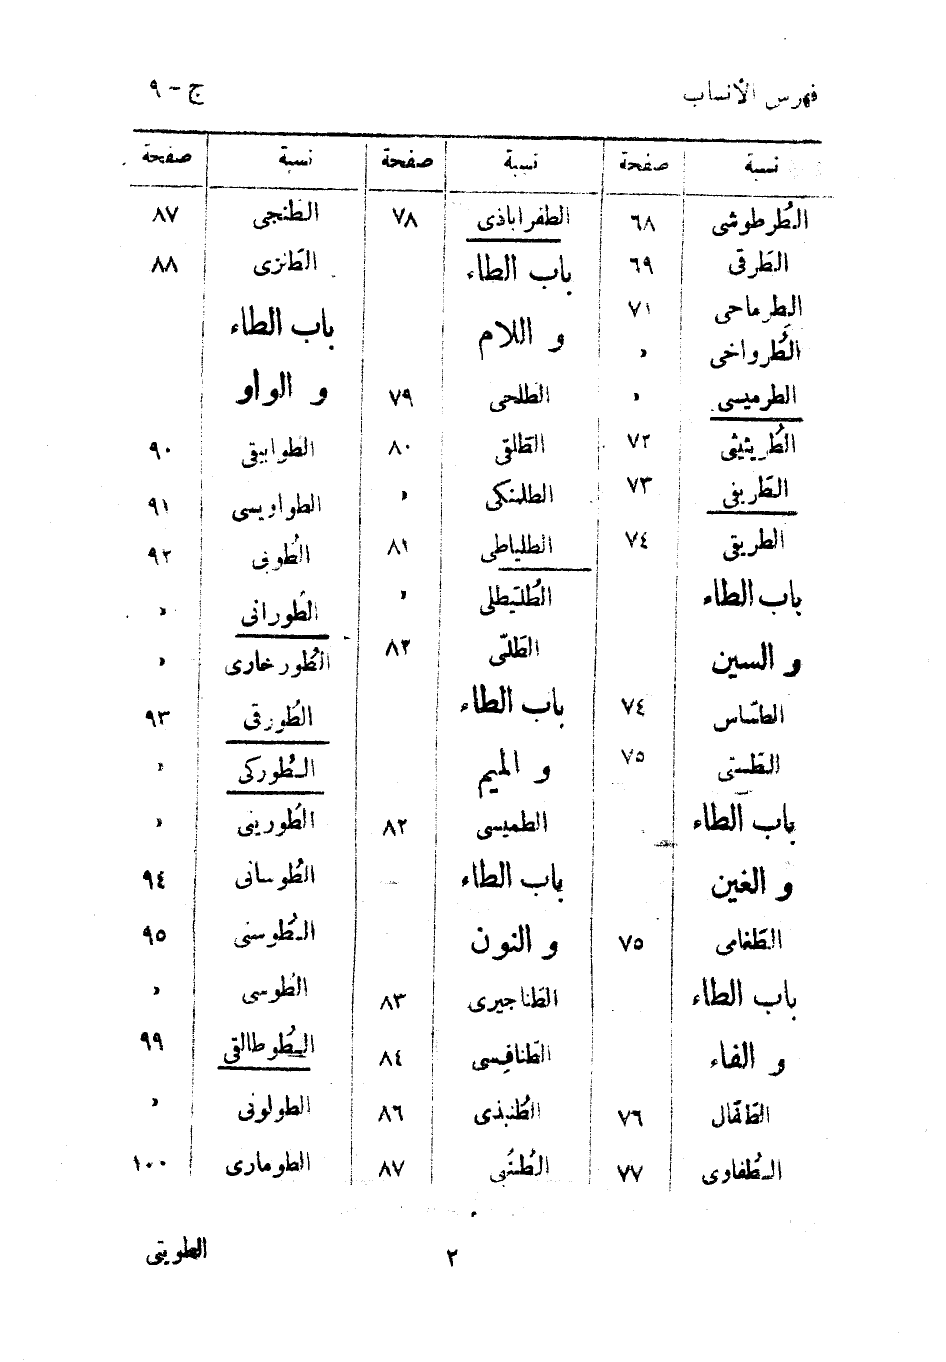 فهرس الأنساب
ج - ٩
نسبة صفحة
الطُرطوشى ٦٨
الطَرقى ٦٩
الطِرماحى ٧١
الطُرواخى »
الطرميسى »
الطُريثيثى ٧٢
الطَريفى ٧٣
الطريقى ٧٤
باب الطاء
و السين
الطسّاس ٧٤
الطَستى ٧٥
باب الطاء
و الغين
الطَغامى ٧٥
باب الطاء
و الفاء
الطَفّال ٧٦
الطُفاوى ٧٧
نسبة صفحة
الطفراباذى ٧٨
باب الطاء
و اللام
الطلحى ٧٩
الطَلقى ٨٠
الطلمنكى »
الطلياطى ٨١
الطُلَيطلى »
الطَلّى ٨٢
باب الطاء
و الميم
الطميسى ٨٢
باب الطاء
و النون
الطَناجيرى ٨٣
الطَنافِسى ٨٤
الطُنبذى ٨٦
الطُنُبى ٨٧
نسبة صفحة
الطَنجى ٨٧
الطَنزى ٨٨
باب الطاء
و الواو
الطوابيقى ٩٠
الطواويسى ٩١
الطُوبى ٩٢
الطَورانى »
الطُورخارى »
الطُورقى ٩٣
الطُوركى »
الطُورينى »
الطُوسانى ٩٤
الطُوسنى ٩٥
الطُوسى »
الطُوطالقى ٩٩
الطولونى »
الطومارى ١٠٠
٢
الطويتى